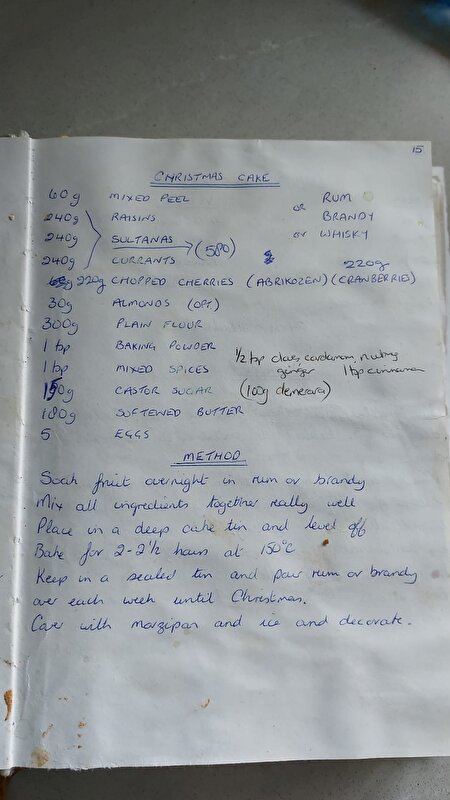 15
CHRISTMAS CAKE
60g MIXED PEEL RUM
240g RAISINS or BRANDY
240g SULTANAS (580) or WHISKY
240g CURRANTS 220g
220g CHOPPED CHERRIES (ABRIKOZEN) (CRANBERRIES)
30g ALMONDS (OPT.)
300g PLAIN FLOUR
1 tsp BAKING POWDER 1/2 tsp cloves, cardamom, nutmeg
1 tsp MIXED SPICES ginger 1 tsp cinnamon
150g CASTOR SUGAR (100g demerara)
180g SOFTENED BUTTER
5 EGGS
METHOD
Soak fruit overnight in rum or brandy
Mix all ingredients together really well
Place in a deep cake tin and level off
Bake for 2-2 1/2 hours at 150°C
Keep in a sealed tin and pour rum or brandy
over each week until Christmas.
Cover with marzipan and ice and decorate.